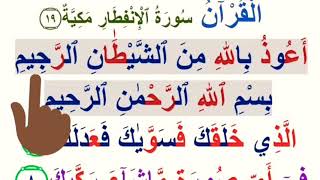 الْقُرْآنُ سُورَةُ الْإِنْفِطَارِ مَكِيَّةٌ ﴿١٩﴾
أَعُوذُ بِاللهِ مِنَ الشَّيْطَانِ الرَّجِيمِ
بِسْمِ اللهِ الرَّحْمٰنِ الرَّحِيمِ
الَّذِي خَلَقَكَ فَسَوَّيٰكَ فَعَدَلَكَ